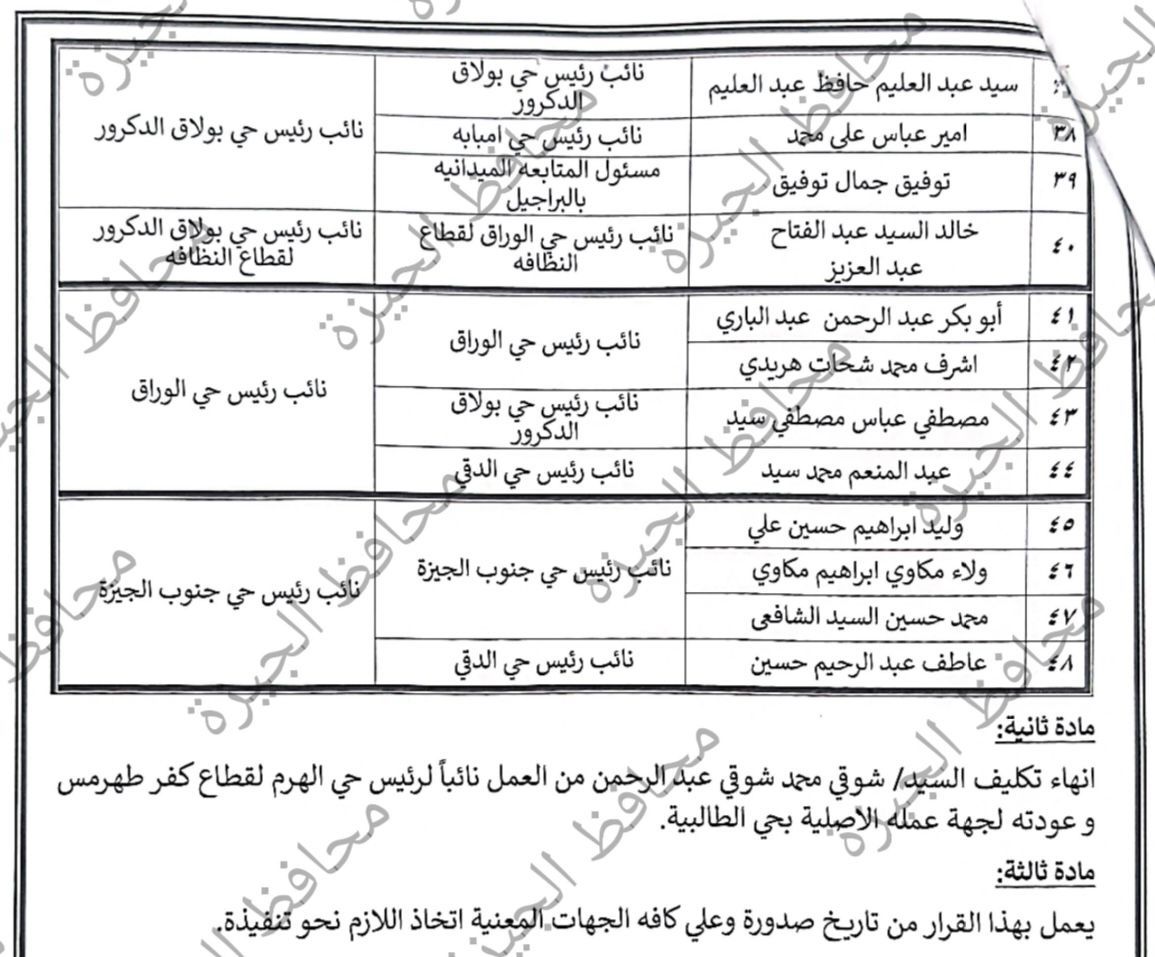 سيد عبد العليم حافظ عبد العليم
نائب رئيس حي بولاق
الدكرور
نائب رئيس حي بولاق الدكرور
٣٨
امير عباس علي محمد
نائب رئيس حي امبابه
٣٩
توفيق جمال توفيق
مسئول المتابعه الميدانيه
بالبراجيل
٤٠
خالد السيد عبد الفتاح
عبد العزيز
نائب رئيس حي الوراق لقطاع
النظافه
نائب رئيس حي بولاق الدكرور
لقطاع النظافه
٤١
أبو بكر عبد الرحمن عبد الباري
نائب رئيس حي الوراق
نائب رئيس حي الوراق
٤٢
اشرف محمد شحات هريدي
٤٣
مصطفي عباس مصطفي سيد
نائب رئيس حي بولاق
الدكرور
٤٤
عبد المنعم محمد سيد
نائب رئيس حي الدقي
٤٥
وليد ابراهيم حسين علي
نائب رئيس حي جنوب الجيزة
نائب رئيس حي جنوب الجيزة
٤٦
ولاء مكاوي ابراهيم مكاوي
٤٧
محمد حسين السيد الشافعى
٤٨
عاطف عبد الرحيم حسين
نائب رئيس حي الدقي
مادة ثانية:
انهاء تكليف السيد/ شوقي محمد شوقي عبد الرحمن من العمل نائباً لرئيس حي الهرم لقطاع كفر طهرمس
و عودته لجهة عمله الاصلية بحي الطالبية.
مادة ثالثة:
يعمل بهذا القرار من تاريخ صدورة وعلي كافه الجهات المعنية اتخاذ اللازم نحو تنفيذة.
محافظ الجيزة